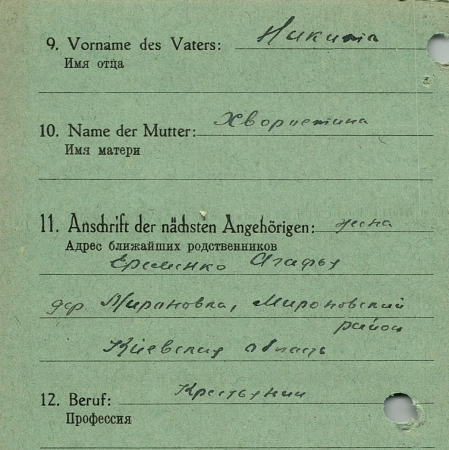 9. Vorname des Vaters: Никита
Имя отца
10. Name der Mutter: Хвористина
Имя матери
11. Anschrift der nächsten Angehörigen: жена
Адрес ближайших родственников
Еременко Агафья
дер. Мироновка, Мироновский
район
Киевская область
12. Beruf: Крестьянин
Профессия